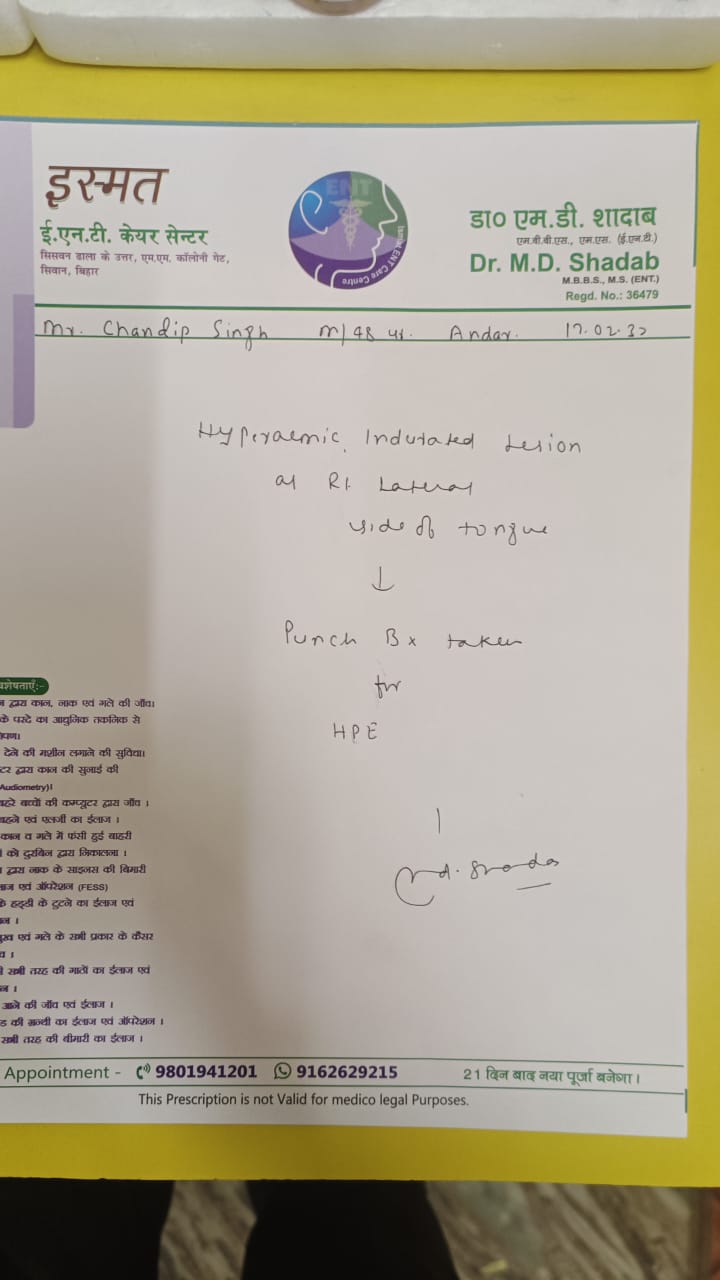 इस्मत
ई.एन.टी. केयर सेन्टर
सिसवन ढाला के उत्तर, एम.एम. कॉलोनी गेट,
सिवान, बिहार
ENT
Ismat ENT Care Centre
डा० एम.डी. शादाब
एम.बी.बी.एस., एम.एस. (ई.एन.टी.)
Dr. M.D. Shadab
M.B.B.S., M.S. (ENT.)
Regd. No.: 36479
Mr. Chandip Singh M/48 yr. Andar. 17.02.
Hyperaemic, Indurated Lesion
at Rt Lateral
side of tongue
↓
Punch Bx taken
for
HPE
शेषताएँ:-
द्वारा कान, नाक एवं गले की जाँच।
के परदे का आधुनिक तकनिक से
पण।
देने की मशीन लगाने की सुविधा।
टर द्वारा कान की सुनाई की
Audiometry)।
बहरे बच्चों की कम्प्यूटर द्वारा जाँच ।
बहने एवं एलर्जी का ईलाज ।
कान व गले में फंसी हुई बाहरी
को दुरबिन द्वारा निकालना ।
द्वारा नाक के साइनस की बिमारी
ाज एवं ऑपरेशन (FESS)
के हड्डी के टुटने का ईलाज एवं
न ।
एवं गले के सभी प्रकार के कैंसर
सभी तरह की गाठों का ईलाज एवं
न ।
आने की जाँच एवं ईलाज ।
ड की ग्रन्थी का ईलाज एवं ऑपरेशन ।
सभी तरह की बीमारी का ईलाज ।
Appointment - 9801941201 9162629215 21 दिन बाद नया पूर्जा बनेगा।
This Prescription is not Valid for medico legal Purposes.